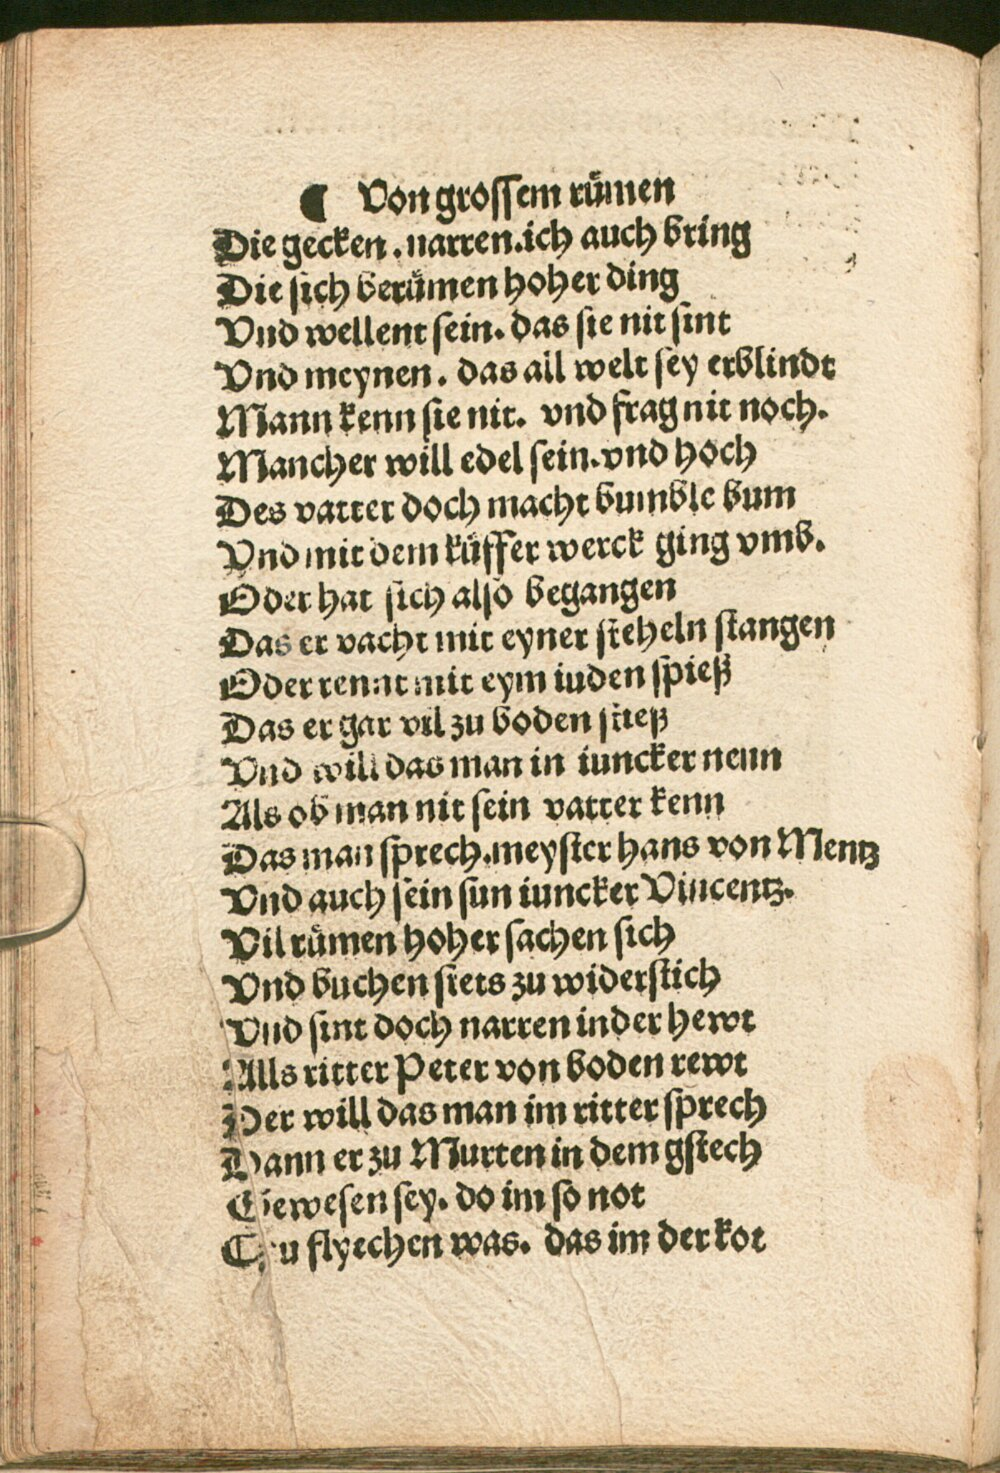 ⸿ Von grossem růmen
Die gecken .narren.ich auch bring
Die sich berůmen hoher ding
Vnd wellent sein. das sie nit sint
Vnd meynen. das all welt sey erblindt
Mann kenn sie nit. vnd frag nit noch.
Mancher will edel sein.vnd hoch
Des vatter doch macht bumble bum
Vnd mit dem kůffer werck ging vmb.
Oder hat sich also begangen
Das er vacht mit eyner steheln stangen
Oder rennt mit eym iuden spieß
Das er gar vil zu boden stieß
Vnd will das man in iuncker nenn
Als ob man nit sein vatter kenn
Das man sprech.meyster hans von Mentz
Vnd auch sein sun iuncker Vincentz.
Vil růmen hoher sachen sich
Vnd buchen stets zu widerstich
Vnd sint doch narren inder hewt
Alls ritter Peter von boden rewt
Der will das man im ritter sprech
Dann er zu Murten in dem gstech
Gewesen sey. do im so not
Czu flyechen was. das im der kot